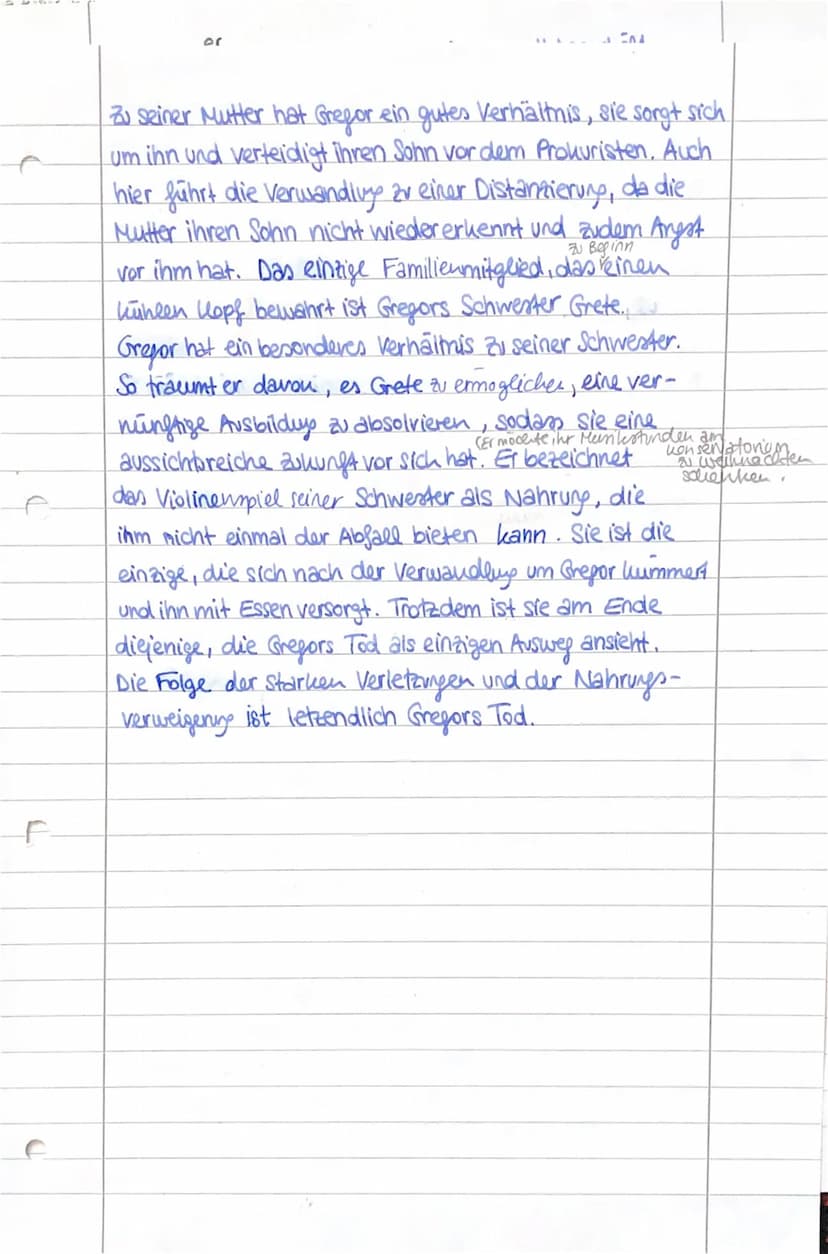 or
End
Zu seiner Mutter hat Gregor ein gutes Verhältnis, sie sorgt sich
um ihn und verteidigt ihren Sohn vor dem Prokuristen. Auch
hier führt die Verwandlung zu einer Distanzierung, da die
Mutter ihren Sohn nicht wiedererkennt und zudem Angst
zu Beginn
vor ihm hat. Das einzige Familienmitglied, das einen
kühlen Kopf bewahrt ist Gregors Schwester Grete.
Gregor hat ein besonderes Verhältnis zu seiner Schwester.
So träumt er davon, es Grete zu ermöglichen, eine ver-
nünftige Ausbildung zu absolvieren, sodass sie eine
(Er möchte ihr Musikstunden am
Konservatorium
zu Weihnachten
schenken.
aussichtsreiche Zukunft vor sich hat. Er bezeichnet
das Violinenspiel seiner Schwester als Nahrung, die
ihm nicht einmal der Abfall bieten kann. Sie ist die
einzige, die sich nach der Verwandlung um Gregor kümmert
und ihn mit Essen versorgt. Trotzdem ist sie am Ende
diejenige, die Gregors Tod als einzigen Ausweg ansieht.
Die Folge der starken Verletzungen und der Nahrungs-
verweigerung ist letzendlich Gregors Tod.